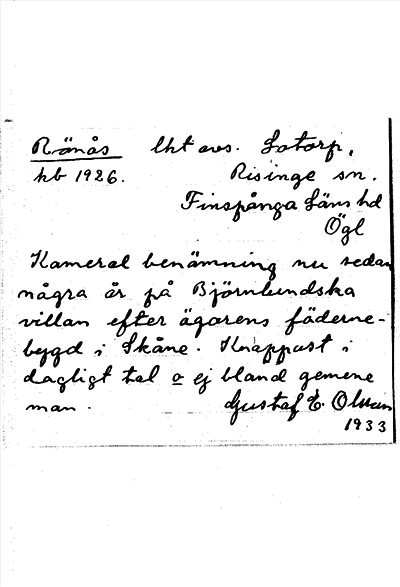 Rönås lht avs. Lotorp,
kb 1926. Risinge sn.
Finspånga Läns hd
Ögl
Kameral benämning nu sedan
några år på Björnlundska
villan efter ägarens fäderne-
bygd i Skåne. Knappast i
dagligt tal o ej bland gemene
man. Gustaf E. Olsson
1933